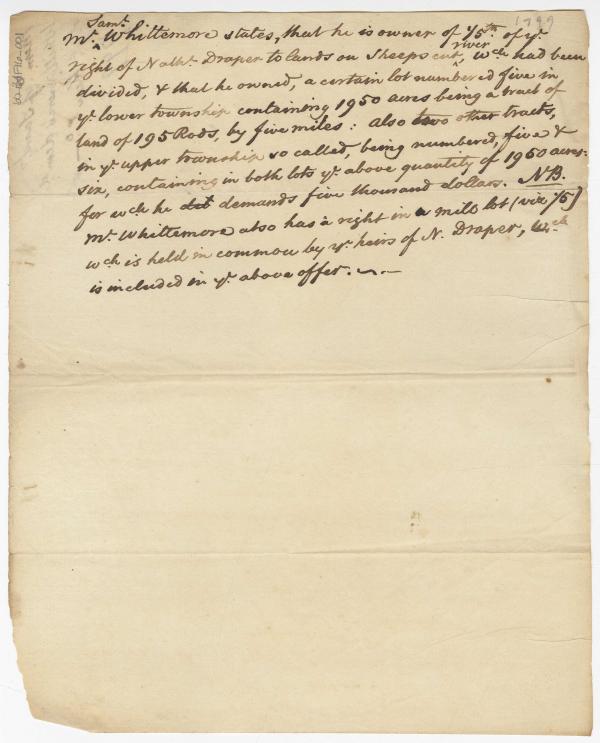 1799
Saml.
Mr. Whittemore states, that he is owner of 1/5th. of ye.
right of Nathl. Draper to lands on Sheepscut, river wch had been
divided, & that he owned, a certain lot numbered five in
ye. lower township containing 1950 acres being a tract of
land of 195 Rods, by five miles: Also two other tracts,
in ye. upper township so called, being numbered, five &
six, containing in both lots ye. above quantity of 1950 acres:
for wch he demands five thousand dollars. NB.
Mr. Whittemore also has a right in a mill lot (viz 1/5)
wch is held in common by ye. heirs of N. Draper, wch
is included in ye. above offer.